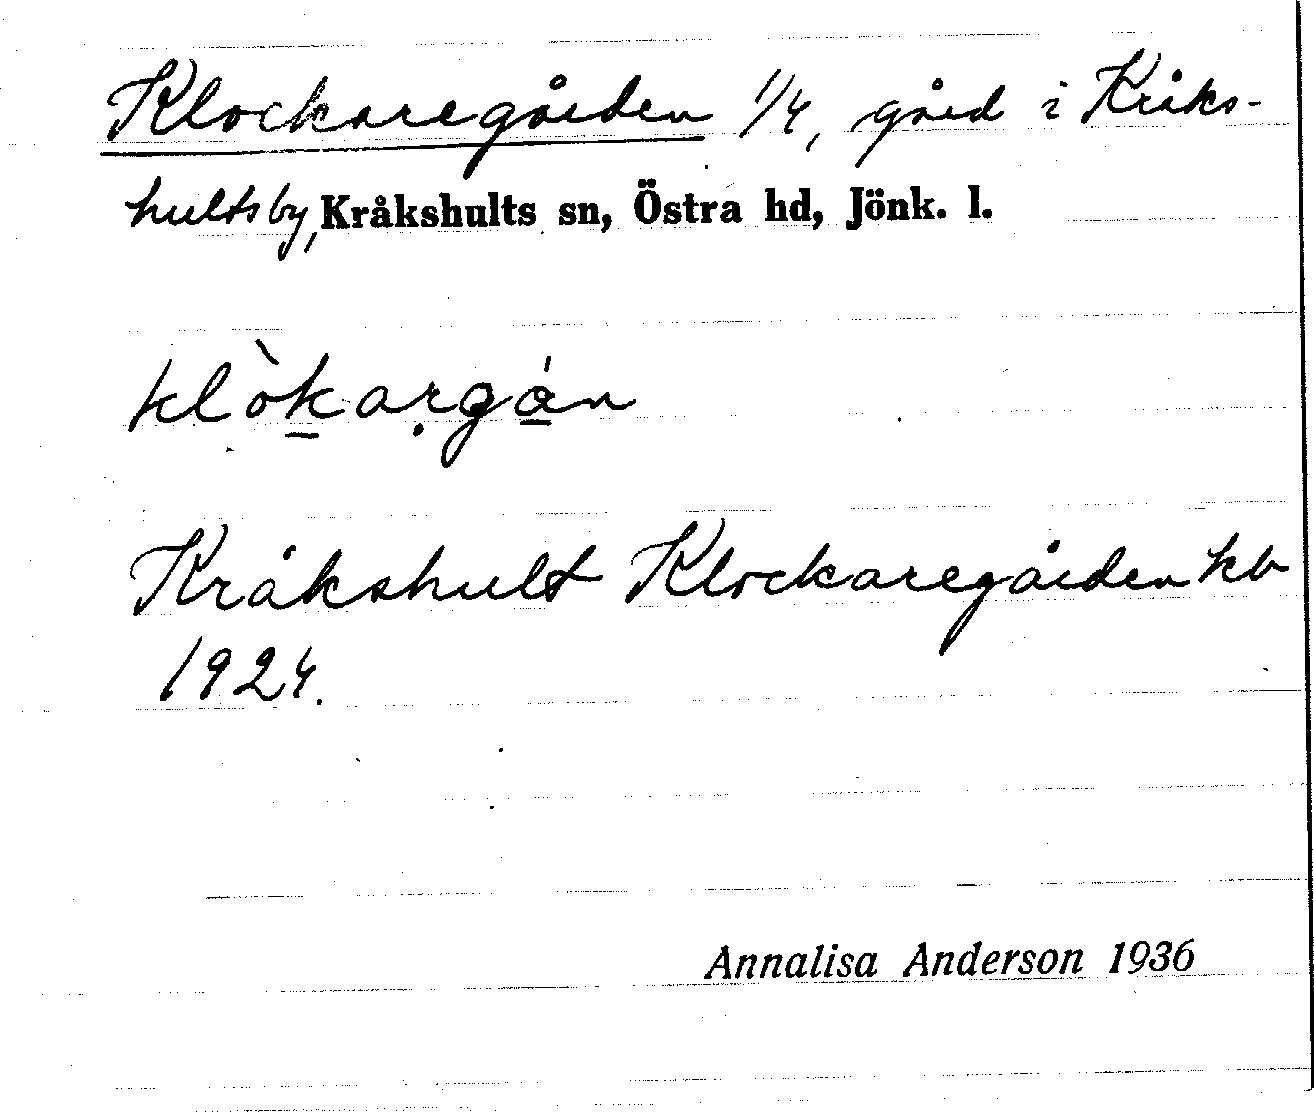 Klockaregården 1/4, gård i Kråks-
hultsby, Kråkshults sn, Östra hd, Jönk. l.
klòkargán
Kråkshult Klockaregården kb
1924.
Annalisa Anderson 1936